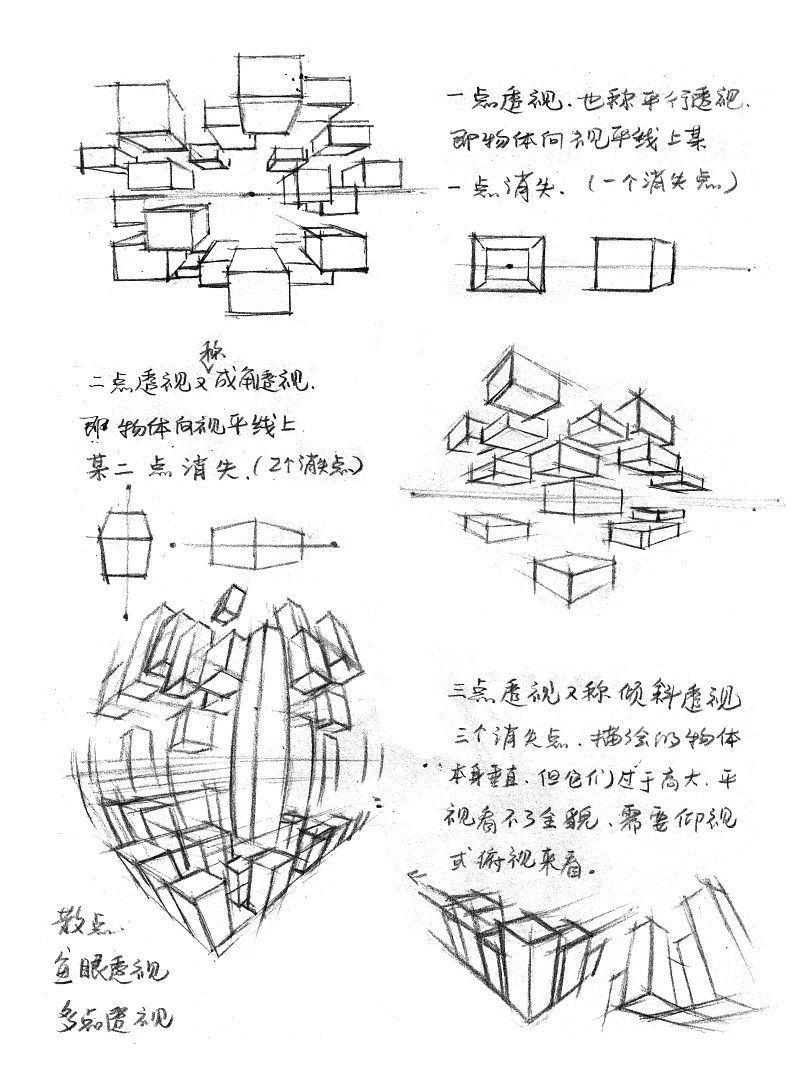 一点透视、也称平行透视、
即物体向视平线上某
一点消失、(一个消失点)
二点透视又称成角透视、
即物体向视平线上
某二点消失、(2个消失点)
三点透视又称倾斜透视
三个消失点、描绘的物体
本身垂直、但它们过于高大、平
视看不了全貌、需要仰视
或俯视来看。
散点
鱼眼透视
多点透视